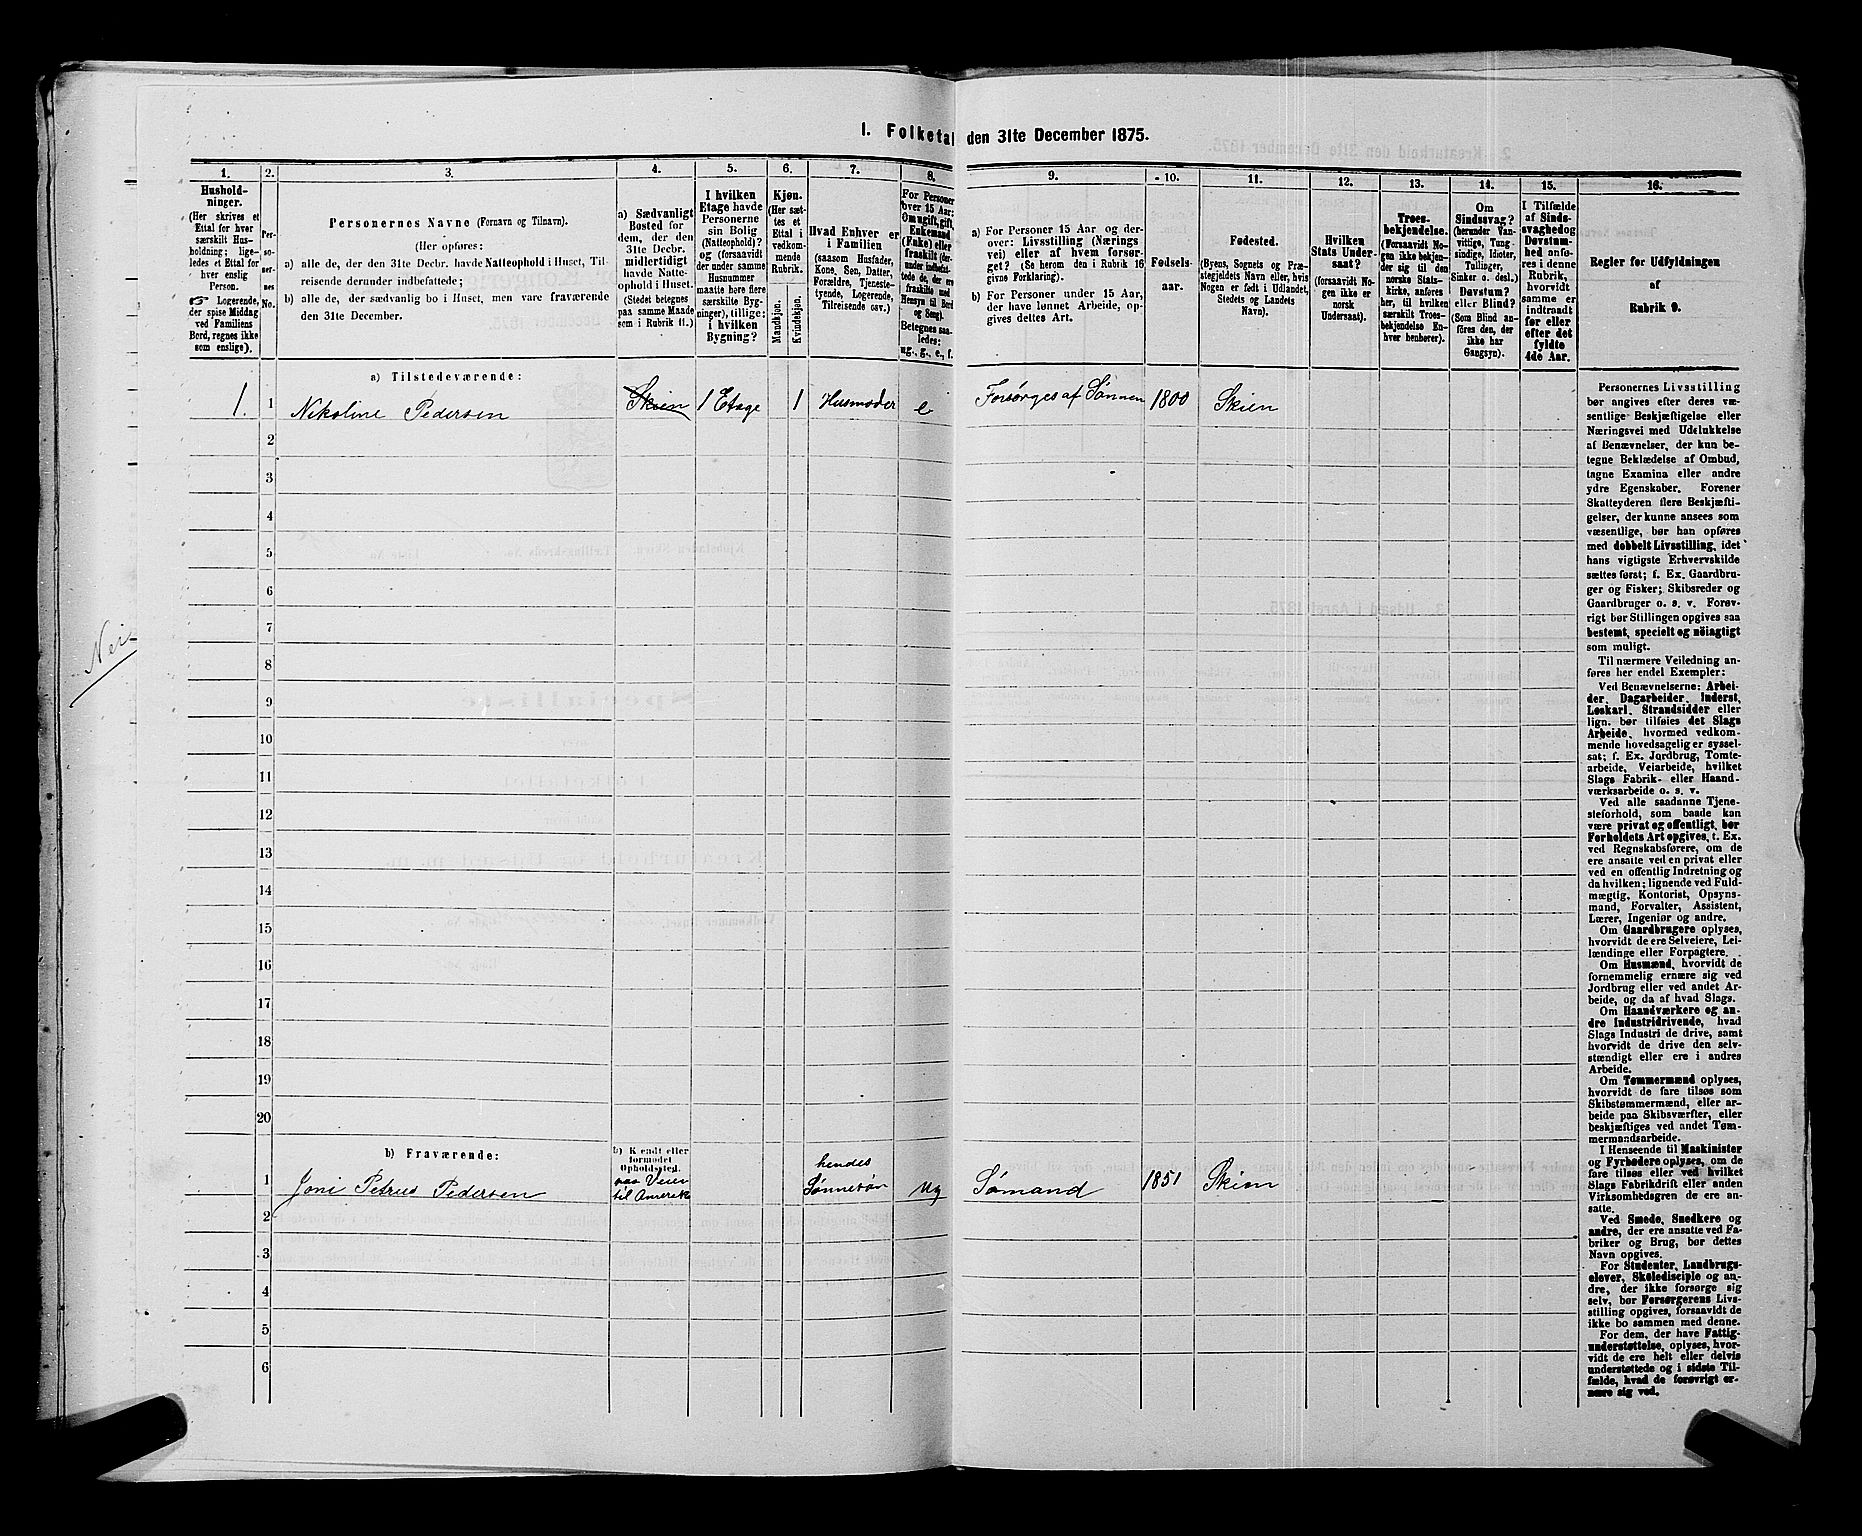 1. Folketal den 31te December 1875.
1.
Hushold-
ninger.
(Her skrives et
Ettal for hver
særskilt Hus-
holdning; lige-
ledes et Ettal for
hver enslig
Person.
☞ Logerende,
der spise Middag
ved Familiens
Bord, regnes ikke
som enslige).
2.
Per-
so-
ner-
nes
No.
3.
Personernes Navne (Fornavn og Tilnavn).
(Her opføres:
a) alle de, der den 31te Decbr. havde Natteophold i Huset, Til-
reisende derunder indbefattede;
b) alle de, der sædvanlig bo i Huset, men vare fraværende
den 31te December.
4.
a) Sædvanligt
Bosted for
dem, der den
31te Decbr.
midlertidigt
havde Natte-
ophold i Huset.
(Stedet betegnes
paa samme Maade
som i Rubrik 11.)
5.
I hvilken
Etage havde
Personerne
sin Bolig
(Natteophold)?
og (forsaavidt
der under samme
Husnummer
maatte høre flere
særskilte Byg-
ninger), tillige:
i hvilken
Bygning?
6.
Kjøn.
(Her sæt-
tes et
Ettal i
vedkom-
mende
Rubrik.
Mandkjøn.
Kvindekjøn.
7.
Hvad Enhver er
i Familien
(saasom Husfader,
Kone, Søn, Datter,
Forældre, Tjeneste-
tyende, Logerende,
Tilreisende osv.)
8.
For Personer
over 15 Aar:
Om ugift, gift,
Enkemand
(Enke) eller
fraskilt (der-
under indbefat-
tede de, der ere
fraskilte med
Hensyn til Bord
og Seng).
Betegnes saa-
ledes:
ug., g., e., f.
9.
a) For Personer 15 Aar og der-
over: Livsstilling (Nærings
vei) eller af hvem forsør-
get? (Se herom den i Rubrik 16
givne Forklaring).
b) For Personer under 15 Aar,
der have lønnet Arbeide, op-
gives dettes Art.
10.
Fødsels-
aar.
11.
Fødested.
(Byens, Sognets og Præ-
stegjeldets Navn eller, hvis
Nogen er født i Udlandet,
Stedets og Landets
Navn).
12.
Hvilken
Stats Under-
saat?
(forsaavidt No-
gen ikke er
norsk
Undersaat).
13.
Troes-
bekjendelse.
(Forsaavidt No-
gen ikke bekjen-
der sig til den
norske Stats-
kirke, anføres
her, til hvilken
særskilt Troes-
bekjendelse En-
hver henhører).
14.
Om
Sindssvag?
(herunder Van-
vittige, Tung-
sindige, Idioter,
Tullinger,
Sinker o. desl.)
Døvstum?
eller Blind?
(Som Blind an-
føres den, der
ikke har
Gangsyn).
15.
I Tilfælde
af Sinds-
svaghed og
Døvstum-
hed anfø-
res i denne
Rubrik,
hvorvidt
samme er
indtraadt
før eller
efter det
fyldte
4de Aar.
16.
Regler for Udfyldningen
af
Rubrik 9.
a) Tilstedeværende:
1. 1 Nikoline Pedersen Skien 1 Etage 1 Husmoder e Forsørges af Sønnen 1800 Skien
2
3
4
5
6
7
8
9
10
11
12
13
14
15
16
17
18
19
20
Nei
b) Fraværende:
b) Kjendt eller
formodet
Opholdssted.
1 Joni Petrus Pedersen paa Veien til Amerik hendes Sønnesøn ug Sømand 1851 Skien
2
3
4
5
6
Personernes Livsstilling
bør angives efter deres væ-
sentlige Beskjæftigelse eller
Næringsvei med Udelukkelse
af Benævnelser, der kun be-
tegne Beklædelse af Ombud,
tagne Examina eller andre
ydre Egenskaber. Forener
Skatteyderen flere Beskjæfti-
gelser, der kunne ansees som
væsentlige, bør han opføres
med dobbelt Livsstilling, idet
hans vigtigste Erhvervskilde
sættes først; f. Ex. Gaardbru-
ger og Fisker; Skibsreder og
Gaardbruger o. s. v. Forøv-
rigt bør Stillingen opgives saa
bestemt, specielt og nøiagtigt
som muligt.
Til nærmere Veiledning an-
føres her endel Exempler:
Ved Benævnelserne: Arbei-
der, Dagarbeider, Inderst,
Løskarl, Strandsidder eller
lign. bør tilføies det Slags
Arbeide, hvormed vedkom-
mende hovedsagelig er syssel-
sat; f. Ex. Jordbrug, Tomte-
arbeide, Veiarbeide, hvilket
Slags Fabrik- eller Haand-
værksarbeide o. s. v.
Ved alle saadanne Tjene-
steforhold, som baade kan
være privat og offentligt, bør
Forholdets Art opgives, t. Ex.
ved Regnskabsførere, om de
ere ansatte ved en privat eller
ved en offentlig Indretning og
da hvilken; lignende ved Fuld-
mægtig, Kontorist, Opsyns-
mand, Forvalter, Assistent,
Lærer, Ingeniør og andre.
Om Gaardbrugere oplyses,
hvorvidt de ere Selveiere, Lei-
lændinge eller Forpagtere.
Om Husmænd, hvorvidt de
fornemmelig ernære sig ved
Jordbrug eller ved andet Ar-
beide, og da af hvad Slags.
Om Haandværkere og an-
dre Industridrivende, hvad
Slags Industri de drive, samt
hvorvidt de drive den selv-
stændigt eller ere i andres
Arbeide.
Om Tømmermænd oplyses,
hvorvidt de fare tilsøs som
Skibstømmermænd, eller ar-
beide paa Skibsværfter, eller
beskjæftiges ved andet Tøm-
mermandsarbeide.
I Henseende til Maskinister
og Fyrbødere oplyses, om de
fare tilsøs eller ved hvilket
Slags Fabrikdrift eller anden
Virksomhedsgren de ere an-
satte.
Ved Smede, Snedkere og
andre, der ere ansatte ved Fa-
briker og Brug, bør dettes
Navn opgives.
For Studenter, Landbrugs-
elever, Skoledisciple og an-
dre, der ikke forsørge sig
selv, bør Forsørgerens Livs-
stilling opgives, forsaavidt de
ikke bo sammen med denne.
For dem, der have Fattig-
understøttelse, oplyses, hvor-
vidt de ere helt eller delvis
understøttede og i sidste Til-
fælde, hvad de forøvrigt er-
nære sig ved.